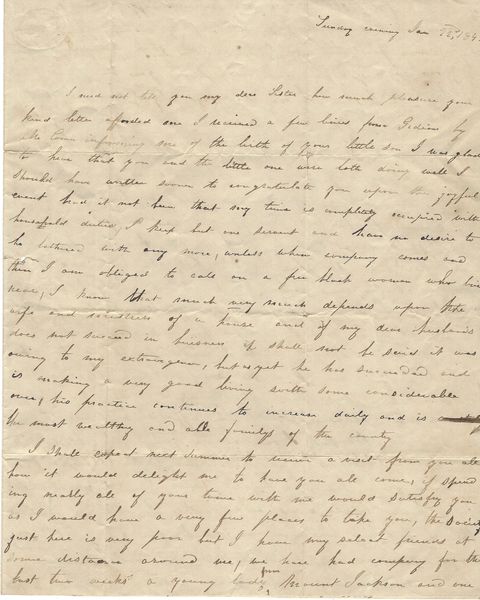 Sunday evening Jan 184
I need not tell you my dear Sister how much pleasure your
kind letter afforded me I received a few lines from Gideon by
informing me of the birth of your little son I was glad
to hear that you and the little one were both doing well I
should have written sooner to congratulate you upon the joyful
event had it not been that my time is completely occupied with
household duties, I keep but one servant and have no desire to
be bothered with any more, unless when company comes and
then I am obliged to call on a free black woman who lives
near, I know that much very much depends upon the
wife and mistress of a house and if my dear husband
does not succeed in business it shall not be said it was
owing to my extravagance, but as yet he has succeeded and
is making a very good living with some considerable
over, his practice continues to increase daily and is
the most wealthy and able familys of the county
I shall expect next Summer to receive a visit from you all
how it would delight me to have you all come, if spend
ing nearly all of your time with me would satisfy you
as I would have a very few places to take you, the Society
just here is very poor but I have my select friends at
some distance around me, we have had company for the
last two weeks a young lady from Mount Jackson and one